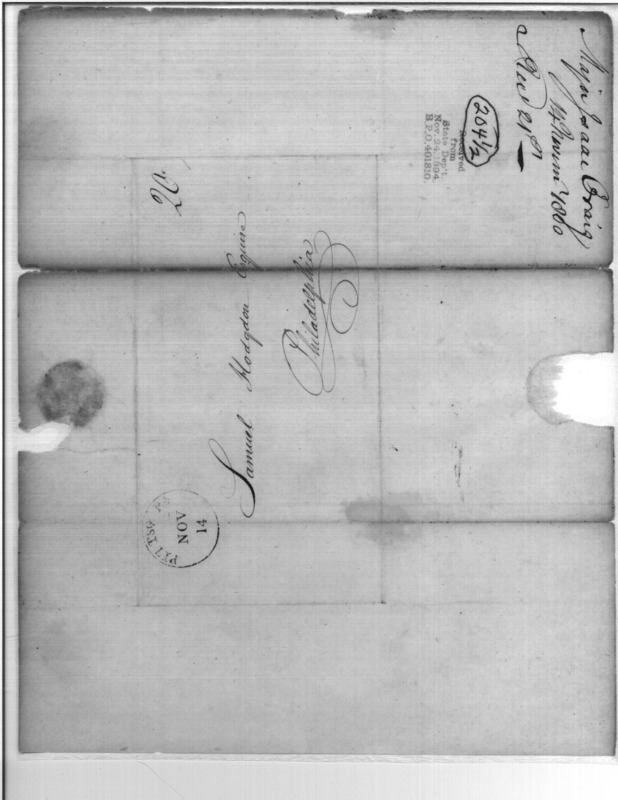 Major Isaac Craig
14 Novem 1800
Recd 21st
204 1/2
Received
from
State Dep't.
Nov. 24, 1894.
R.P.O. 401810.
Samuel Hodgdon Esquire
Philadelphia
PITTSG
14
NOV